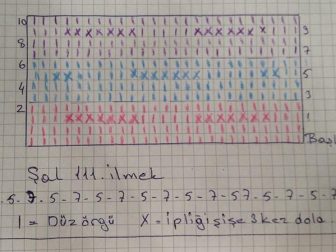 11
10 9
8 7
6 5
4 3
2 1
Başl
Şal 111. ilmek
5-7-5-7-5-7-5-7-5-7-57-5-7-5-7
| = Düz örgü X = ipliği şişe 3 kez dola